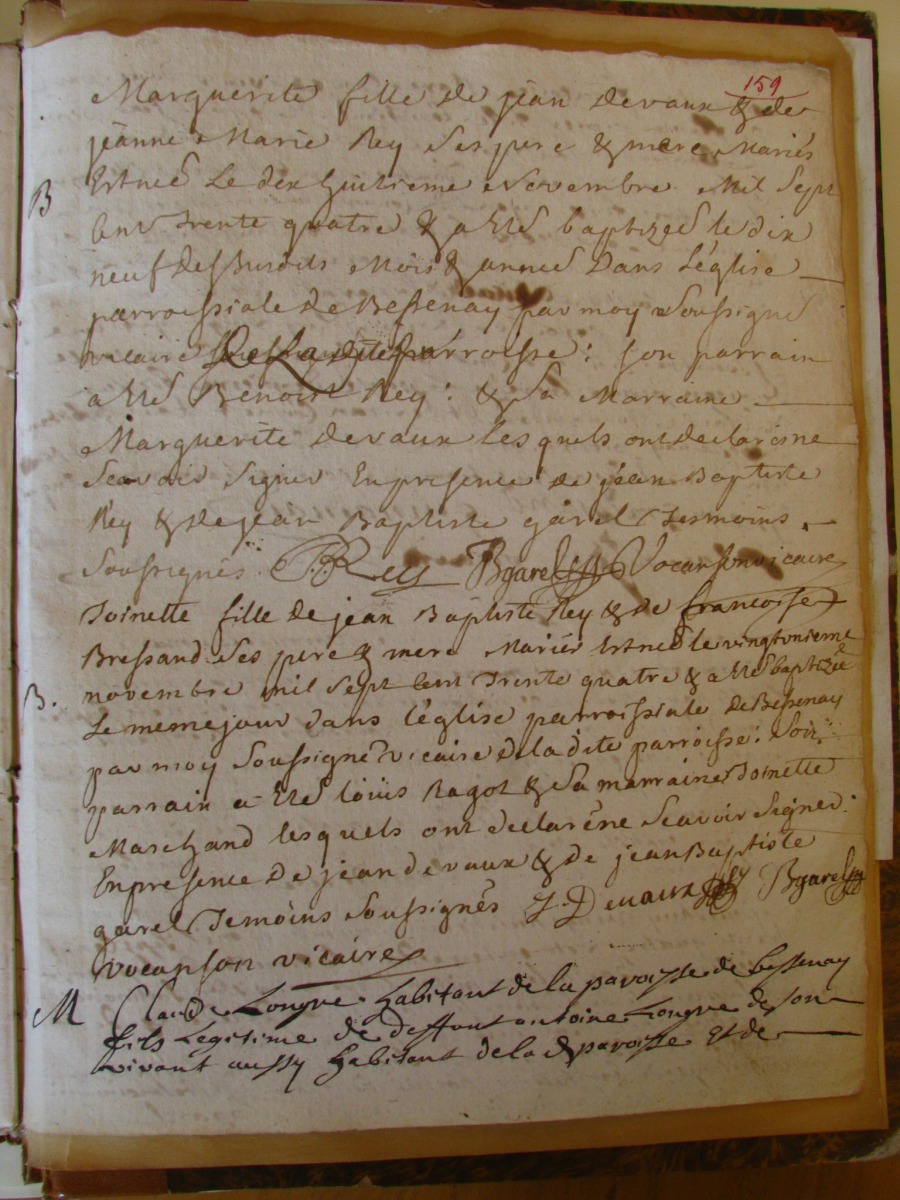 159
Marguerite fille de jean devaux & de
jeanne Marie Rey Ses pere & mere Mariés
B
Est neé Le dix huitieme Novembre Mil Sept
Cent Trente quatre & a eté baptizeé le dix
neuf desSusdits Mois & anneé Dans L'église
parroissiale de Bessenay par moy Soussigné
vicaire De La dite parroisse : son parrain
a eté Benoist Rey : & Sa Marraine
Marguerite devaux lesquels ont declaréne
Scavoir Signer En presence de jean Baptiste
Rey & de jean Baptiste garel Tesmoins
Soussignés. Rey Bgarel Vocanson vicaire
Toinette fille de jean Baptiste Rey & de francoise
Bressand Ses pere & mere Mariés est neé le vingtunieme
B.
novembre mil Sept Cent Trente quatre & a eté baptizeé
Le meme jour dans l'église parroissiale de Bessenay
par moy Soussigné vicaire de la dite parroisse : Son
parrain a eté loüis Ragot & Sa marraine Toinette
Marchand lesquels ont declaréne Scavoir Signer.
En presence de jean devaux & de jean Baptiste
garel Temoins Soussignés J. Devaux Bgarel
vocanson vicaire
M
Claude Longue habitant de la paroisse de bessenay
fils Legitime de deffunt antoine Longue de son
vivant aussy habitant de la d paroisse Et de